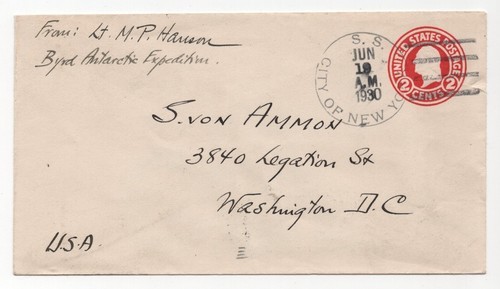 From: Lt. M.P. Hanson
Byrd Antarctic Expedition.
S. S.
CITY OF NEW YORK
JUN
19
A.M.
1930
UNITED STATES POSTAGE
2 CENTS 2
S. VON AMMON
3840 Legation St
Washington D.C
U.S.A.